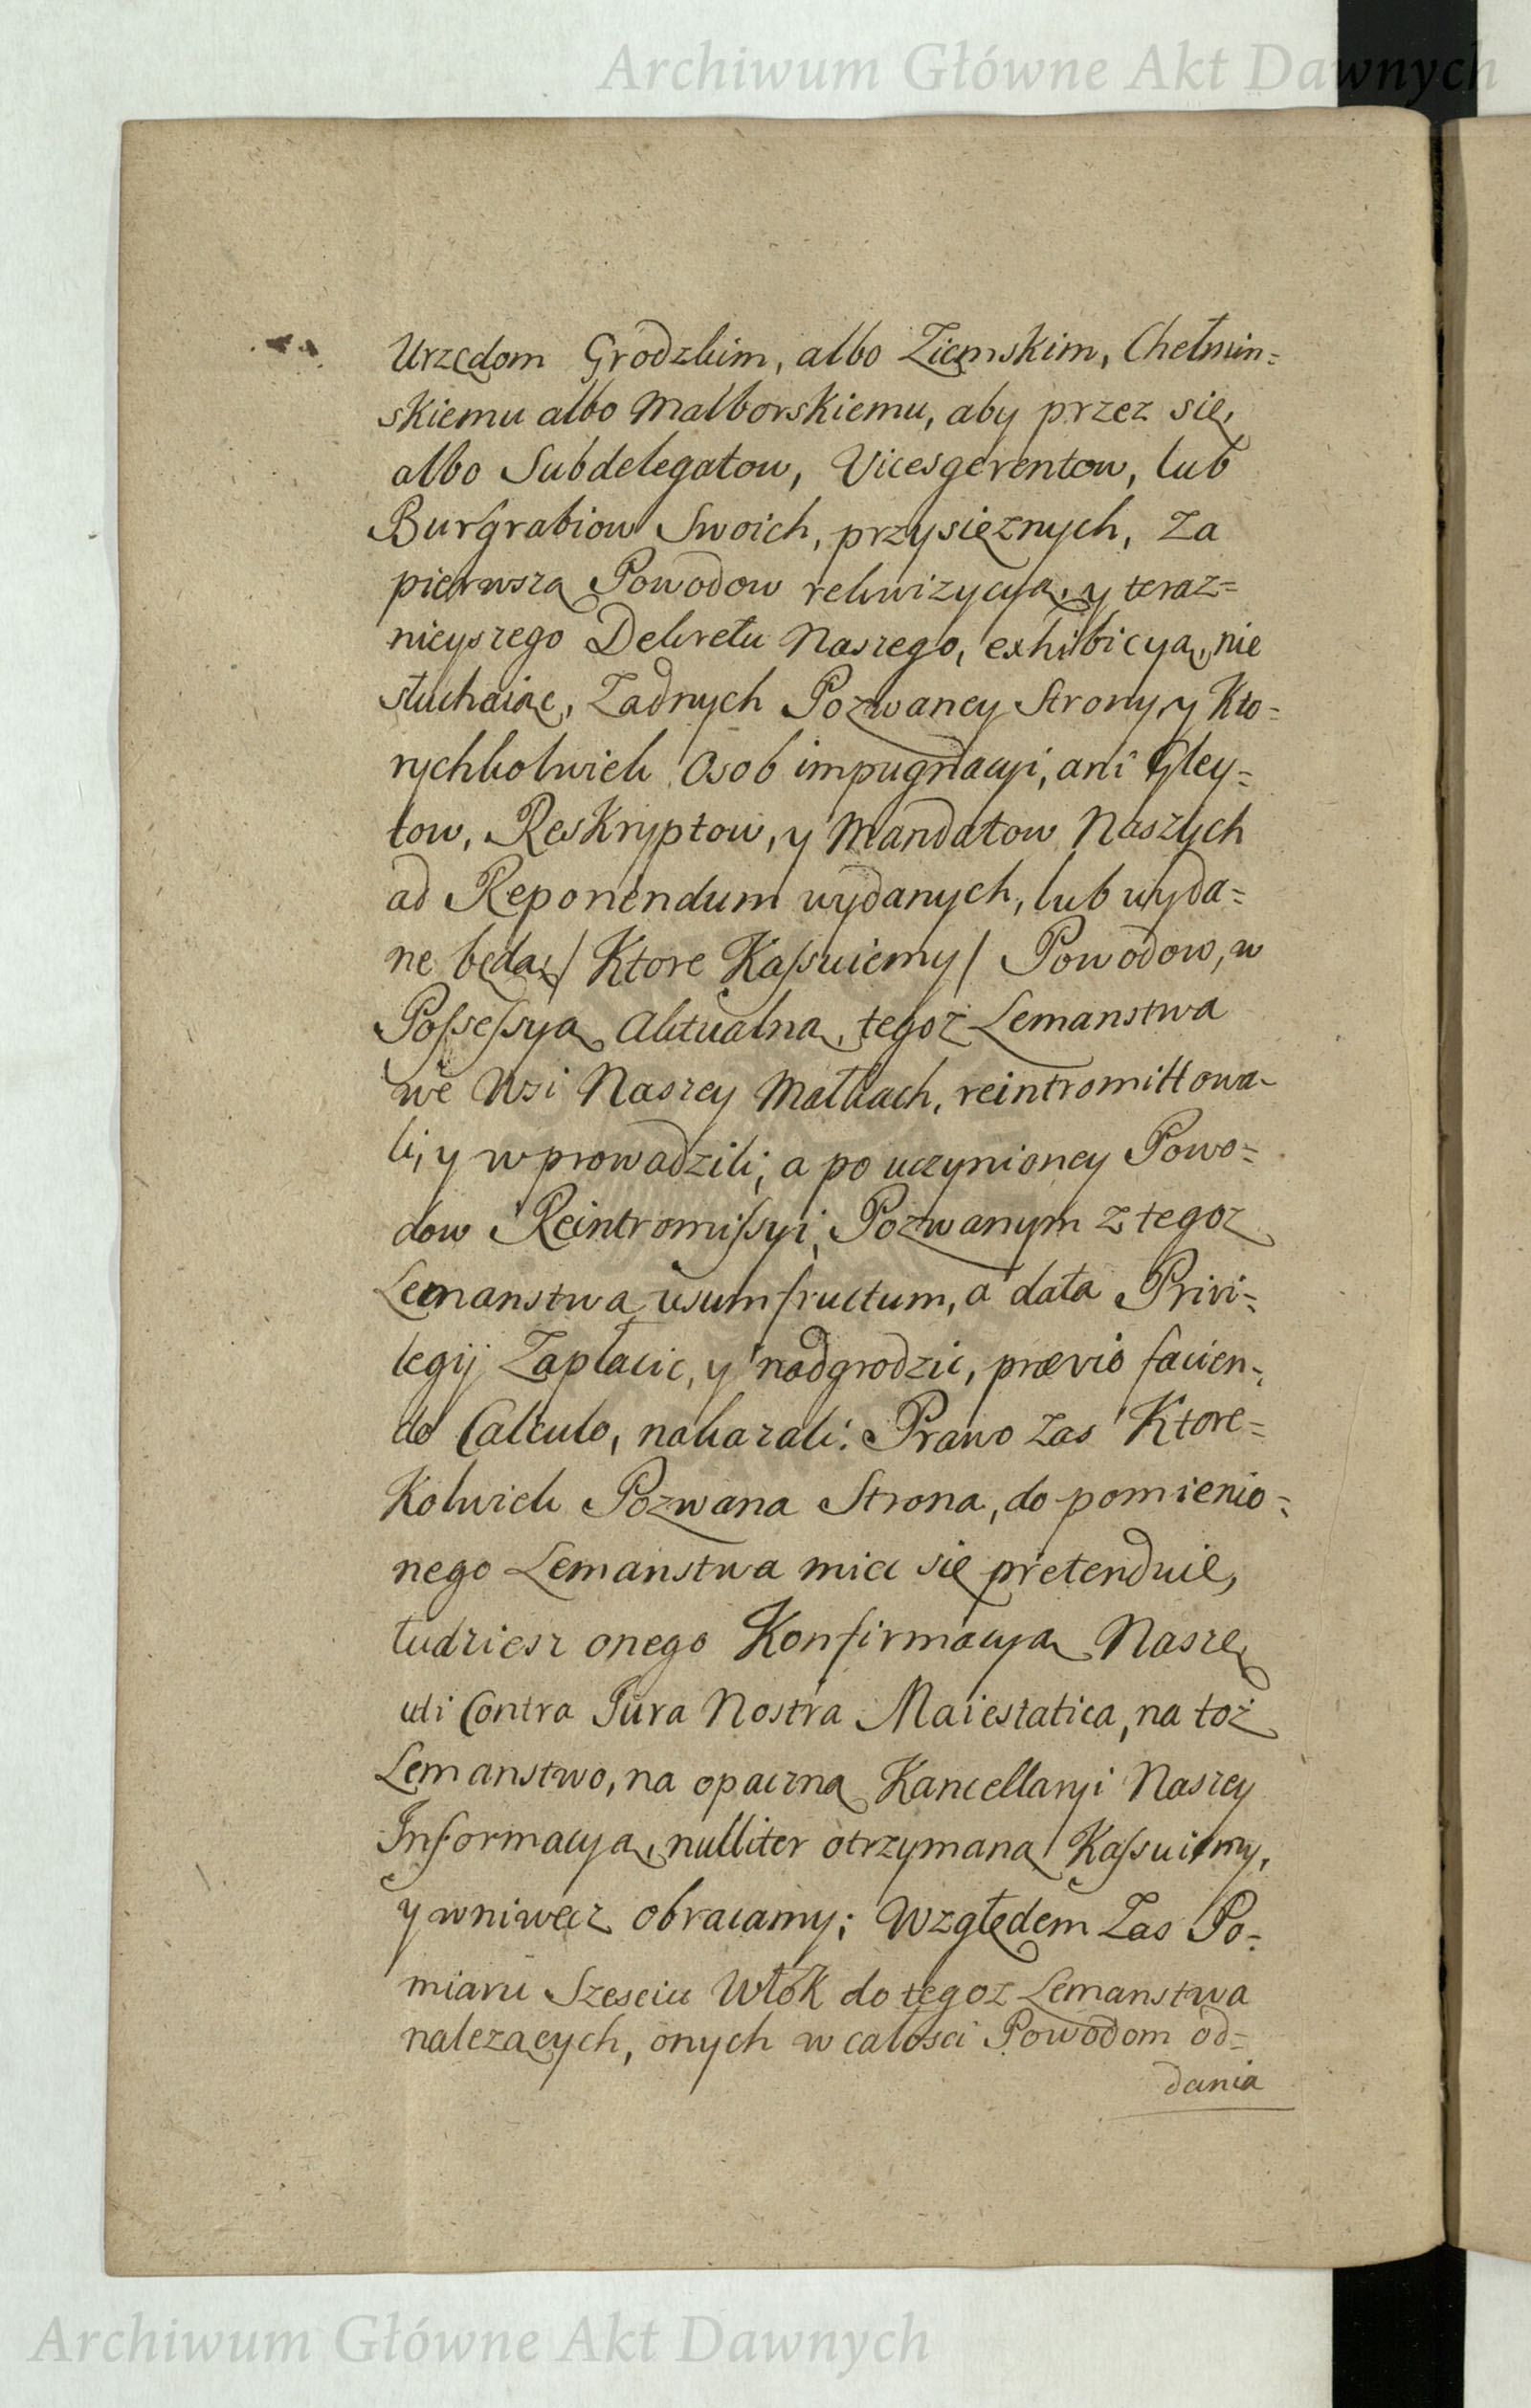 Archiwum Główne Akt Dawnych
Urzędom Grodzkim, albo Ziemskim, Chełmin=
skiemu albo Malborskiemu, aby przez się,
albo Subdelegatow, Vicesgerentow, lub
Burgrabiow Swoich, przysięznych, za
pierwszą Powodow rekwizycyą, y teraz=
nieyszego Dekretu Naszego, exhibicyą, nie
słuchaiąc, Zadnych Pozwaney Strony, y Kto=
rychkolwiek Osob impugnacyi, ani Gley=
tow, Reskryptow, y Mandatow Naszych
ad Reponendum wydanych, lub wyda=
ne będą, / Ktore Kassuiemy / Powodow, w
Possessyą Aktualną, tegoz Lemanstwa
we Wsi Naszey Małkach, reintromittowa=
li, y wprowadzili; a po uczynioney Powo=
dow Reintromissyi, Pozwanym z tegoz
Lemanstwa usumfructum, a data Privi=
legij Zapłacic, y nadgrodzic, prævio facien=
do Calculo, nakazali: Prawo zas Ktore=
Kolwiek Pozwana Strona, do pomienio=
nego Lemanstwa miec się pretenduie,
tudziesz onego Konfirmacyą Naszę
uti Contra Jura Nostra Maiestatica, na toż
Lemanstwo, na opaczną Kancellaryi Naszey
Informacyą, nulliter otrzymaną Kassuiemy,
y wniwecz obracamy; Względem Zas Po=
miaru Szesciu Włók do tegoz Lemanstwa
nalezących, onych w całosci Powodom od=
dania
Archiwum Główne Akt Dawnych